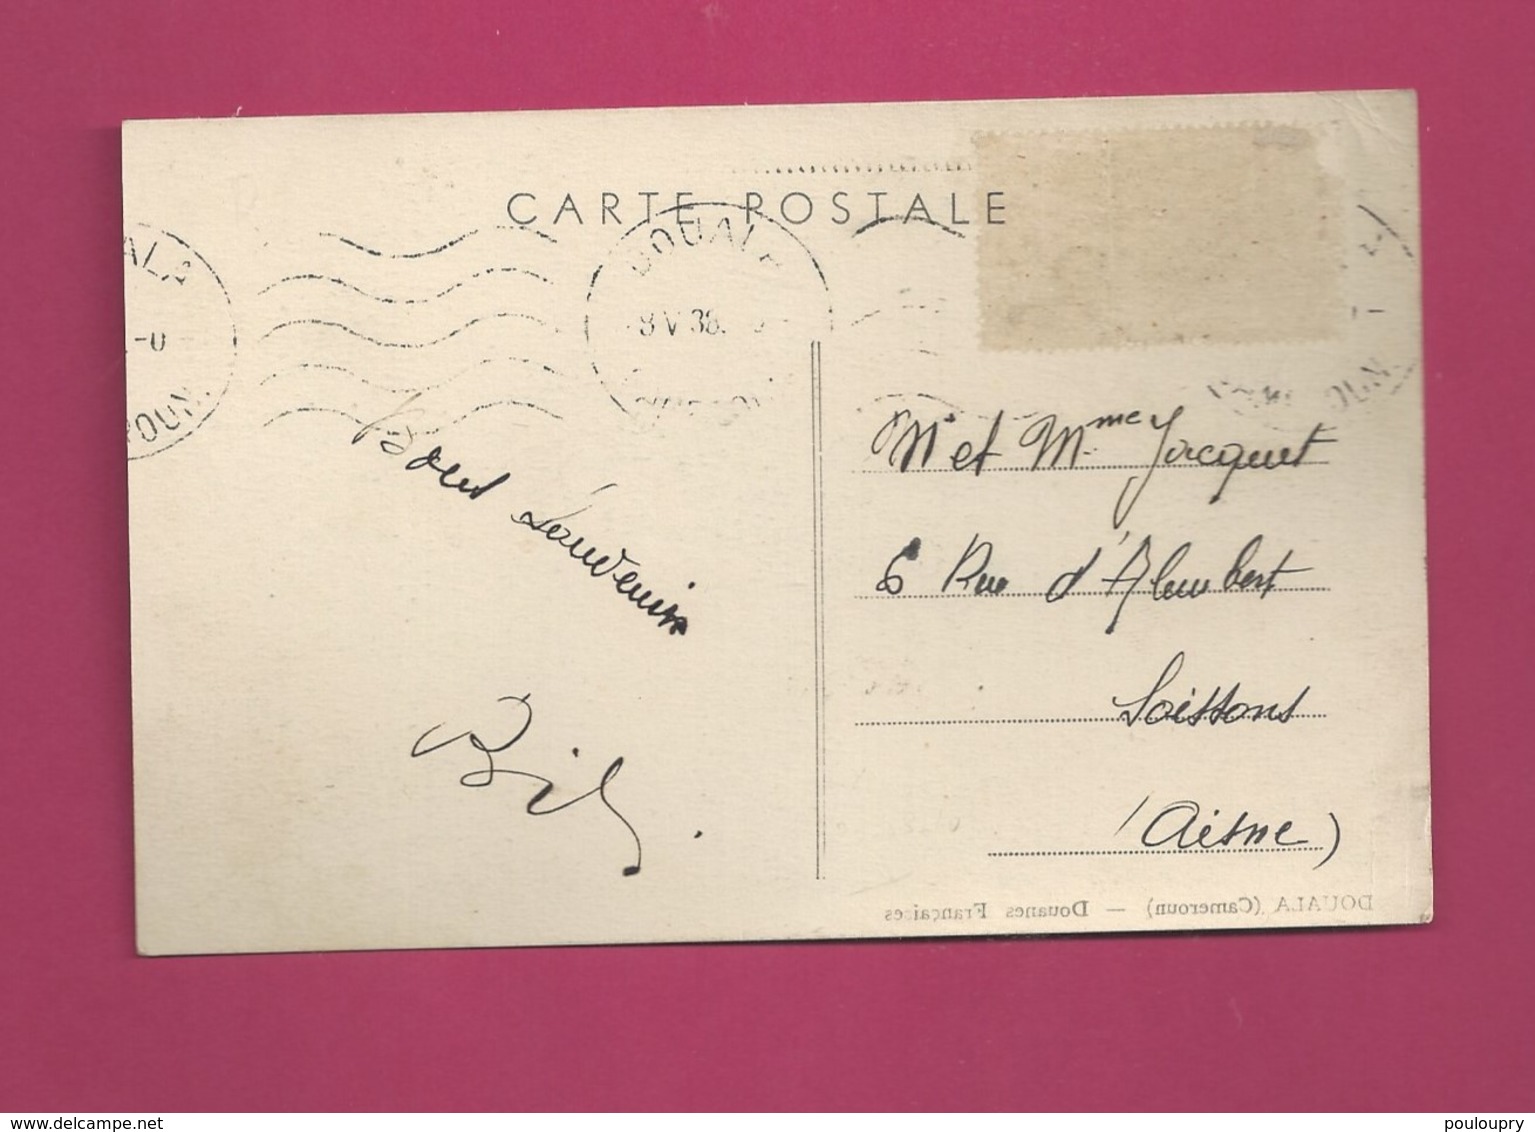 CARTE POSTALE
DOUALA
8 V 38
Bons Souvenirs
Bil.
Mr et Mme Jacquet
6 Rue d'Alembert
Soissons
(Aisne)
DOUALA (Cameroun) — Douanes Françaises
www.delcampe.net
pouloupry